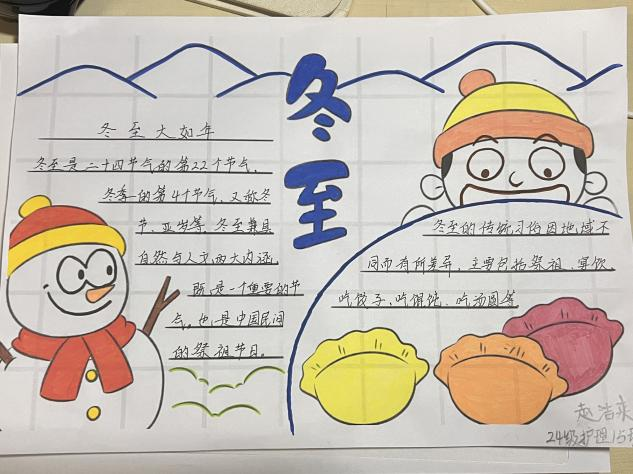 冬至
冬至大如年
冬至是二十四节气的第22个节气、
冬季的第4个节气、又称冬
节、亚岁等、冬至兼具
自然与人文两大内涵
既是一个重要的节
气。也是中国民间
的祭祖节日。
冬至的传统习俗因地域不
同而有所差异、主要包括祭祖、宴饮、
吃饺子、吃馄饨、吃汤圆等
赵浩
24级护理15班